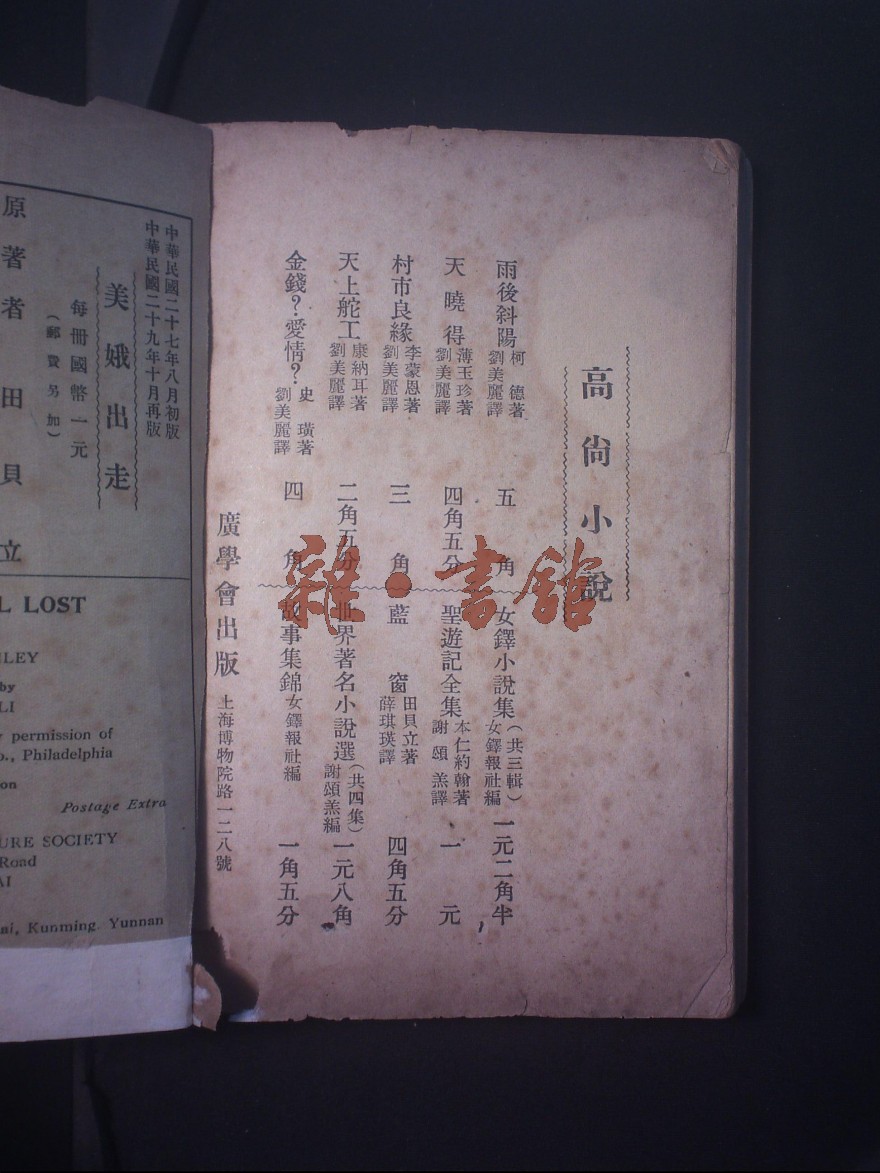 高尚小說
雨後斜陽 柯德著 劉美麗譯 五角
天曉得 薄玉珍著 劉美麗譯 四角五分
村市良緣 李蒙恩著 劉美麗譯 三角
天上舵工 康納耳著 劉美麗譯 二角五分
金錢?愛情? 史璜著 劉美麗譯 四角
女鐸小說集(共三輯) 女鐸報社編 一元二角半
聖遊記全集 本仁約翰著 謝頌羔譯 一元
藍窗 田貝立著 薛琪瑛譯 四角五分
世界著名小說選(共四集) 謝頌羔編 一元八角
故事集錦 女鐸報社編 一角五分
廣學會出版 上海博物院路一二八號
雜·書館
中華民國二十七年八月初版
中華民國二十九年十月再版
美娥出走
每冊國幣一元
(郵費另加)
原著者 田貝立
LOST
LEY
by
LI
permission of
o., Philadelphia
on
Postage Extra
URE SOCIETY
Road
AI
ai, Kunming Yunnan